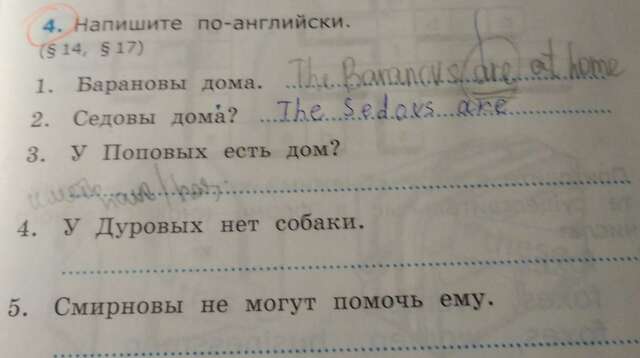 4. Напишите по-английски.
(§ 14, § 17)
1. Барановы дома. The Baranovs are at home
2. Седовы дома? The Sedovs are
3. У Поповых есть дом?
иметь have/has
4. У Дуровых нет собаки.
5. Смирновы не могут помочь ему.